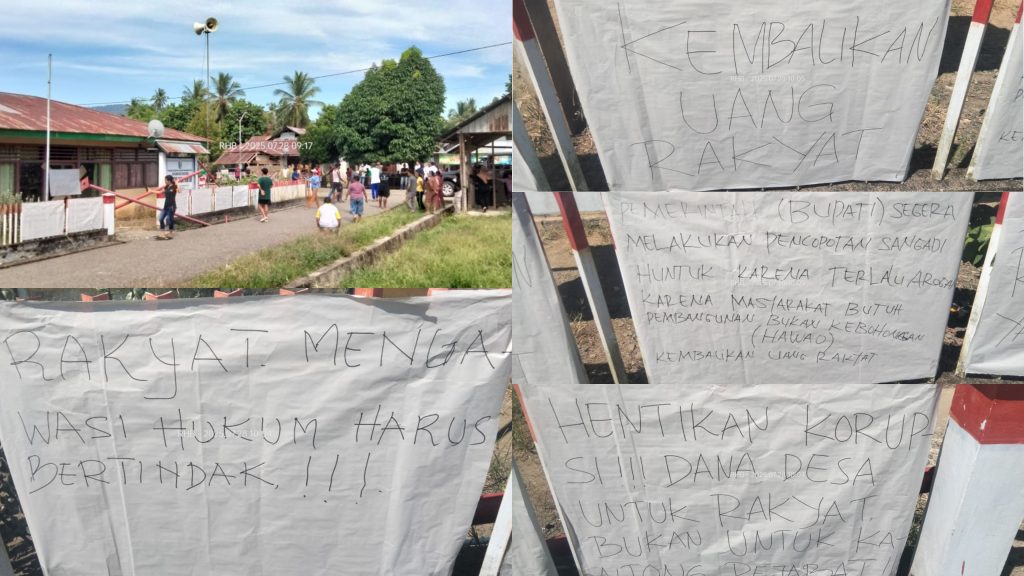 RHB - 2025.07.28 09:17
KEMBALIKAN
UANG
RAKYAT
PEMERINTAH (BUPATI) SEGERA
MELAKUKAN PENCOPOTAN SANGADI
HUNTUK KARENA TERLALU AROGAN
KARENA MASYARAKAT BUTUH
PEMBANGUNAN BUKAN KEBOHONGAN
(HAWAO)
KEMBALIKAN UANG RAKYAT
RAKYAT MENGA
WASI HUKUM HARUS
BERTINDAK, !!!.
HENTIKAN KORUP-
SI!!! DANA DESA
UNTUK RAKYAT
BUKAN UNTUK KA-
NTONG PEJABAT